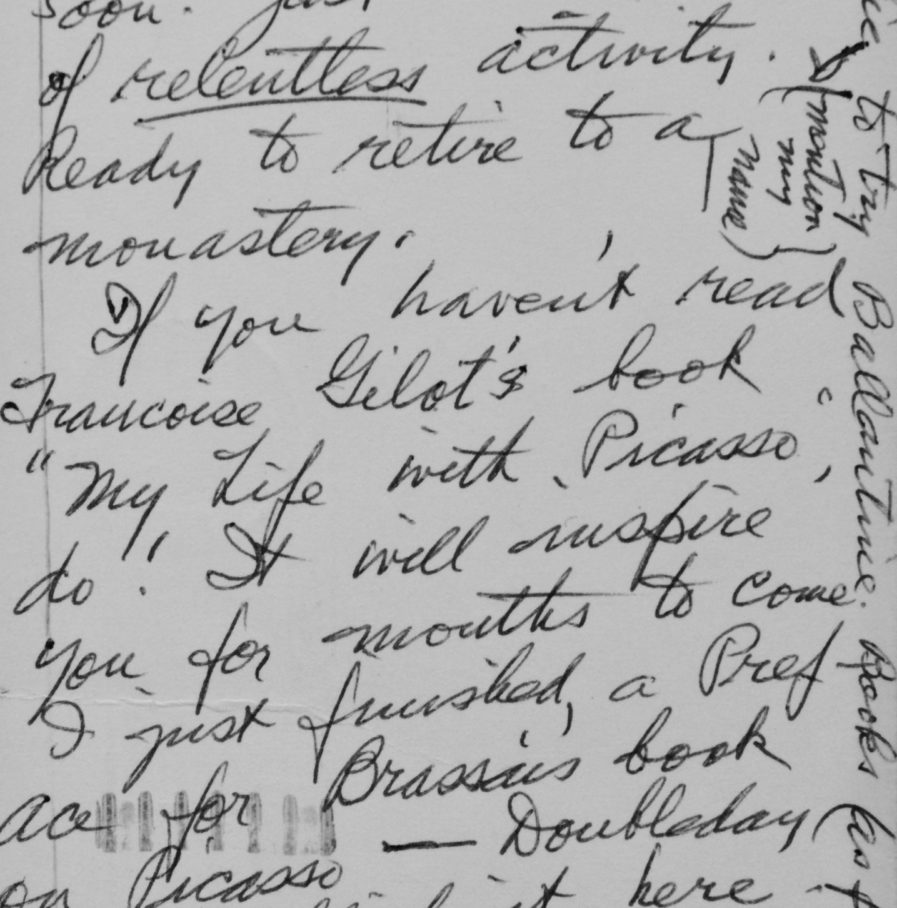 soon. Just
of relentless activity.
Ready to retire to a
monastery.
If you haven't read
Francoise Gilot's book
"My Life with Picasso",
do! It will inspire
you for months to come.
I just finished a Pref-
ace for Brassai's book
on Picasso — Doubleday
here.
to try Ballantine Books
(mention
my
name)